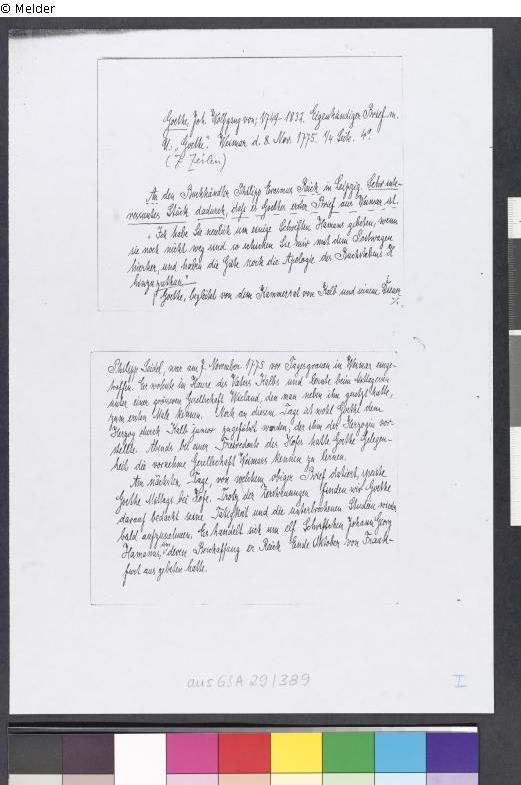 © Melder
Goethe Joh. Wolfgang von; 1749-1832. Eigenhändiger Brief m.
U. „Goethe". Weimar d. 8. Nov. 1775. 1/4 Seite. 4°.
(7 Zeilen)
An den Buchhändler Philipp Erasmus Reich in Leipzig. Sehr inte-
ressantes Stück dadurch, dass es Goethes erster Brief aus Weimar ist.
„Ich habe Sie neulich um einige Schriften Hamans gebeten, wenn
sie noch nicht weg sind so schicken Sie mir mit dem Postwagen
hierher, und haben die Güte noch die Apologie des Buchstabens H
hinzuzuthun."
Goethe, begleitet von dem Kammerrat von Kalb und seinem Diener
Philipp Seidel, war am 7. November 1775 vor Tagesgrauen in Weimar einge-
troffen. Er wohnte im Hause des Vaters Kalbs und lernte beim Mittagessen
unter einer grösseren Gesellschaft Wieland, den man neben ihn gesetzt hatte,
zum ersten Male kennen. Noch an diesem Tage ist wohl Goethe dem
Herzog durch Kalb junior zugeführt worden, der ihn der Herzogin vor-
stellte. Abends bei einer Freiredoute des Hofes hatte Goethe Gelegen-
heit die vornehme Gesellschaft Weimars kennen zu lernen.
Am nächsten Tage, von welchem obiger Brief datiert, speiste
Goethe Mittags bei Hofe. Trotz der Zerstreuungen finden wir Goethe
darauf bedacht seine Tätigkeit und die unterbrochenen Studien wieder
bald aufzunehmen. Es handelt sich um elf Schriftchen Johann Georg
Hamanns, um deren Beschaffung er Reich Ende Oktober von Frank-
furt aus gebeten hatte.
aus GSA 29/389
I